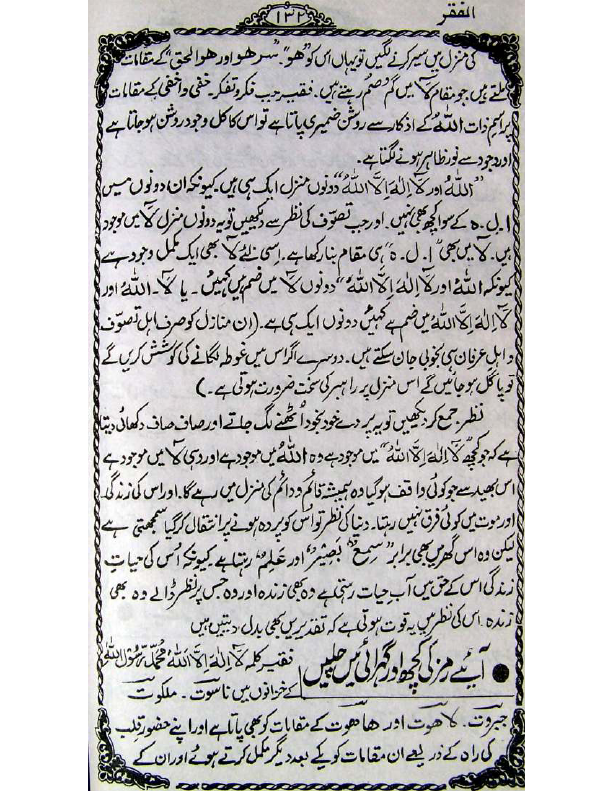 المفقر
۱۳۲
کی منزل میں سیر کرنے لگیں تو یہاں اس کو "ھو"۔ "سرھو اور ھو الحق" کے مقامات
ملتے ہیں جو مقام لآ میں گم صم رہتے ہیں۔ فقیر جب فکر و تفکر۔ خفی و اخفی کے مقامات
پر اسم ذات اللہُ کے اذکار سے روشن ضمیری پاتا ہے تو اس کا کل وجود روشن ہو جاتا ہے
اور وجود سے نور ظاہر ہونے لگتا ہے۔
"اللہُ اور لَآ اِلٰہَ اِلَّا اللہُ" دونوں منزل ایک ہی ہیں۔ کیونکہ ان دونوں میں
ا۔ل۔ہ کے سوا کچھ بھی نہیں۔ اور جب تصوّف کی نظر سے دیکھیں تو یہ دونوں منزل لآ میں موجود
ہیں۔ لآ میں بھی "ا۔ل۔ہ" ہی مقام بنا رکھا ہے۔ اسی لئے لآ بھی ایک مکمل وجود ہے
کیونکہ اللہُ اور لَآ اِلٰہَ اِلَّا اللہُ" دونوں لآ میں ضم ہیں کہیں۔ یا لآ۔ اللہُ اور
لَآ اِلٰہَ اِلَّا اللہُ میں ضم ہے کہیں دونوں ایک ہی ہے۔ (ان منازل کو صرف اہل تصوّف
و اہل عرفان ہی بخوبی جان سکتے ہیں۔ دوسرے اگر اس میں غوطہ لگانے کی کوشش کریں گے
تو پاگل ہو جائیں گے اس منزل پر راہبر کی سخت ضرورت ہوتی ہے۔)
نظر جمع کر دیکھیں تو یہ پردے خود بخود اُٹھنے لگ جاتے اور صاف صاف دکھائی دیتا
ہے کہ جو کچھ "لَآ اِلٰہَ اِلَّا اللہُ" میں موجود ہے وہ اللہُ میں موجود ہے اور وہی لآ میں موجود ہے
اس بھید سے جو کوئی واقف ہو گیا وہ ہمیشہ قائم و دائم کی منزل میں رہے گا۔ اور اس کی زندگی
اور موت میں کوئی فرق نہیں رہتا۔ دنیا کی نظر تو اُس کو پردہ ہونے پر انتقال کر گیا سمجھتی ہے
لیکن وہ اس گھر میں بھی برابر "سمیع" بصیر" اور علیم" رہتا ہے کیونکہ اُس کی حیات
زندگی اس کے حق میں آب حیات رہتی ہے وہ بھی زندہ اور وہ جس پر نظر ڈالے وہ بھی
زندہ۔ اس کی نظر میں یہ قوت ہوتی ہے کہ تقدیریں بھی بدل دیتیں ہیں
● آئیے رمز کی کچھ اور گہرائی میں چلیں
فقیر کلمہ لَآ اِلٰہَ اِلَّا اللہُ مُحَمَّدٌ رَّسُوْلُ اللہُ
کے خزانوں میں ناسوت۔ ملکوت
جبروت۔ لاھوت اور ھاھوت کے مقامات کو بھی پاتا ہے اور اپنے حضور قلب
کی راہ کے ذریعے ان مقامات کو یکے بعد دیگر مکمل کرتے ہوئے اور ان کے